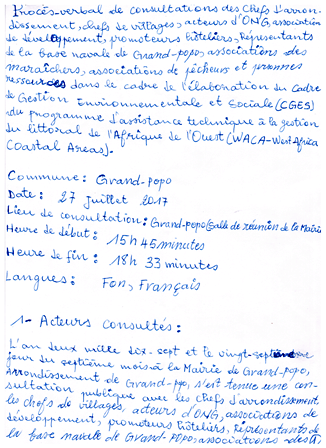 Procès-verbal de consultations des Chefs d'arron-
dissement, chefs de villages, acteurs d'ONG, association
de développement, promoteurs hôteliers, Représentants
de la base navale de Grand-popo, associations des
maraîchers, associations de pêcheurs et personnes
ressources dans le cadre de l'élaboration du Cadre
de Gestion Environnementale et Sociale (CGES)
du programme d'assistance technique à la gestion
du littoral de l'Afrique de l'Ouest (WACA-West Africa
Coastal Areas).
Commune : Grand-popo
Date : 27 Juillet 2017
Lieu de consultation : Grand-popo (Salle de réunion de la Mairie
Heure de début : 15h 45 minutes
Heure de fin : 18h 33 minutes
Langues : Fon, Français
1- Acteurs consultés :
L'an deux mille dix-sept et le vingt-septième
jour du septième mois à la Mairie de Grand-popo,
Arrondissement de Grand-popo, s'est tenue une con-
sultation publique avec les Chefs d'arrondissement
les chefs de villages, acteurs d'ONG, associations de
développement, promoteurs hôteliers, Représentants de
la base navale de Grand-popo, associations des